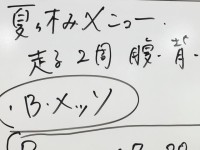 夏休みメニュー
走る 2周 腹・背・
・B・メッツ